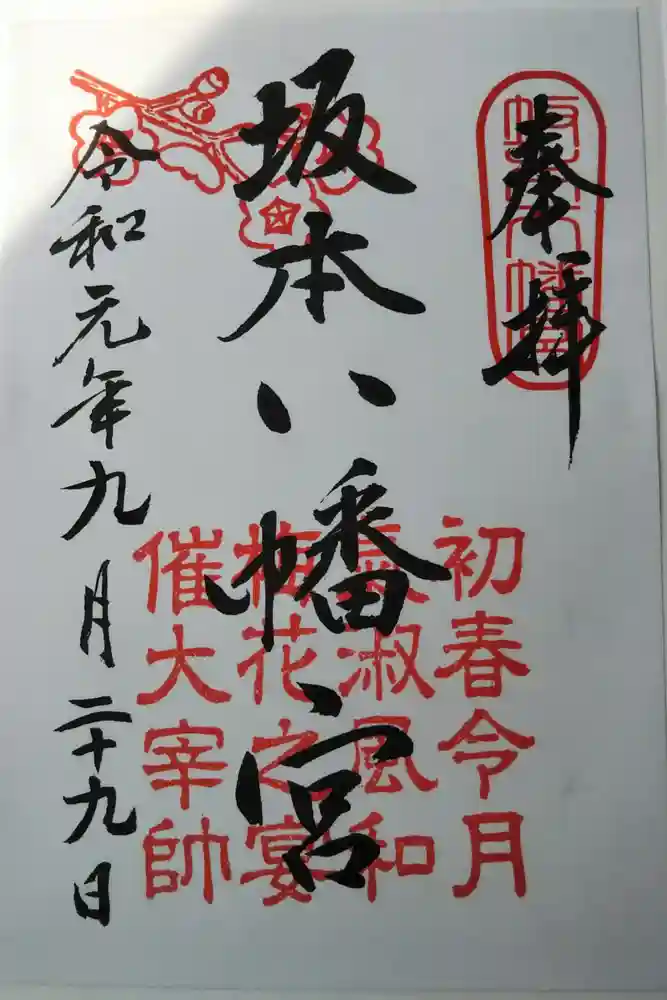 奉拝
坂本八幡宮
初春令月
氣淑風和
梅花之宴
催大宰帥
令和元年九月二十九日